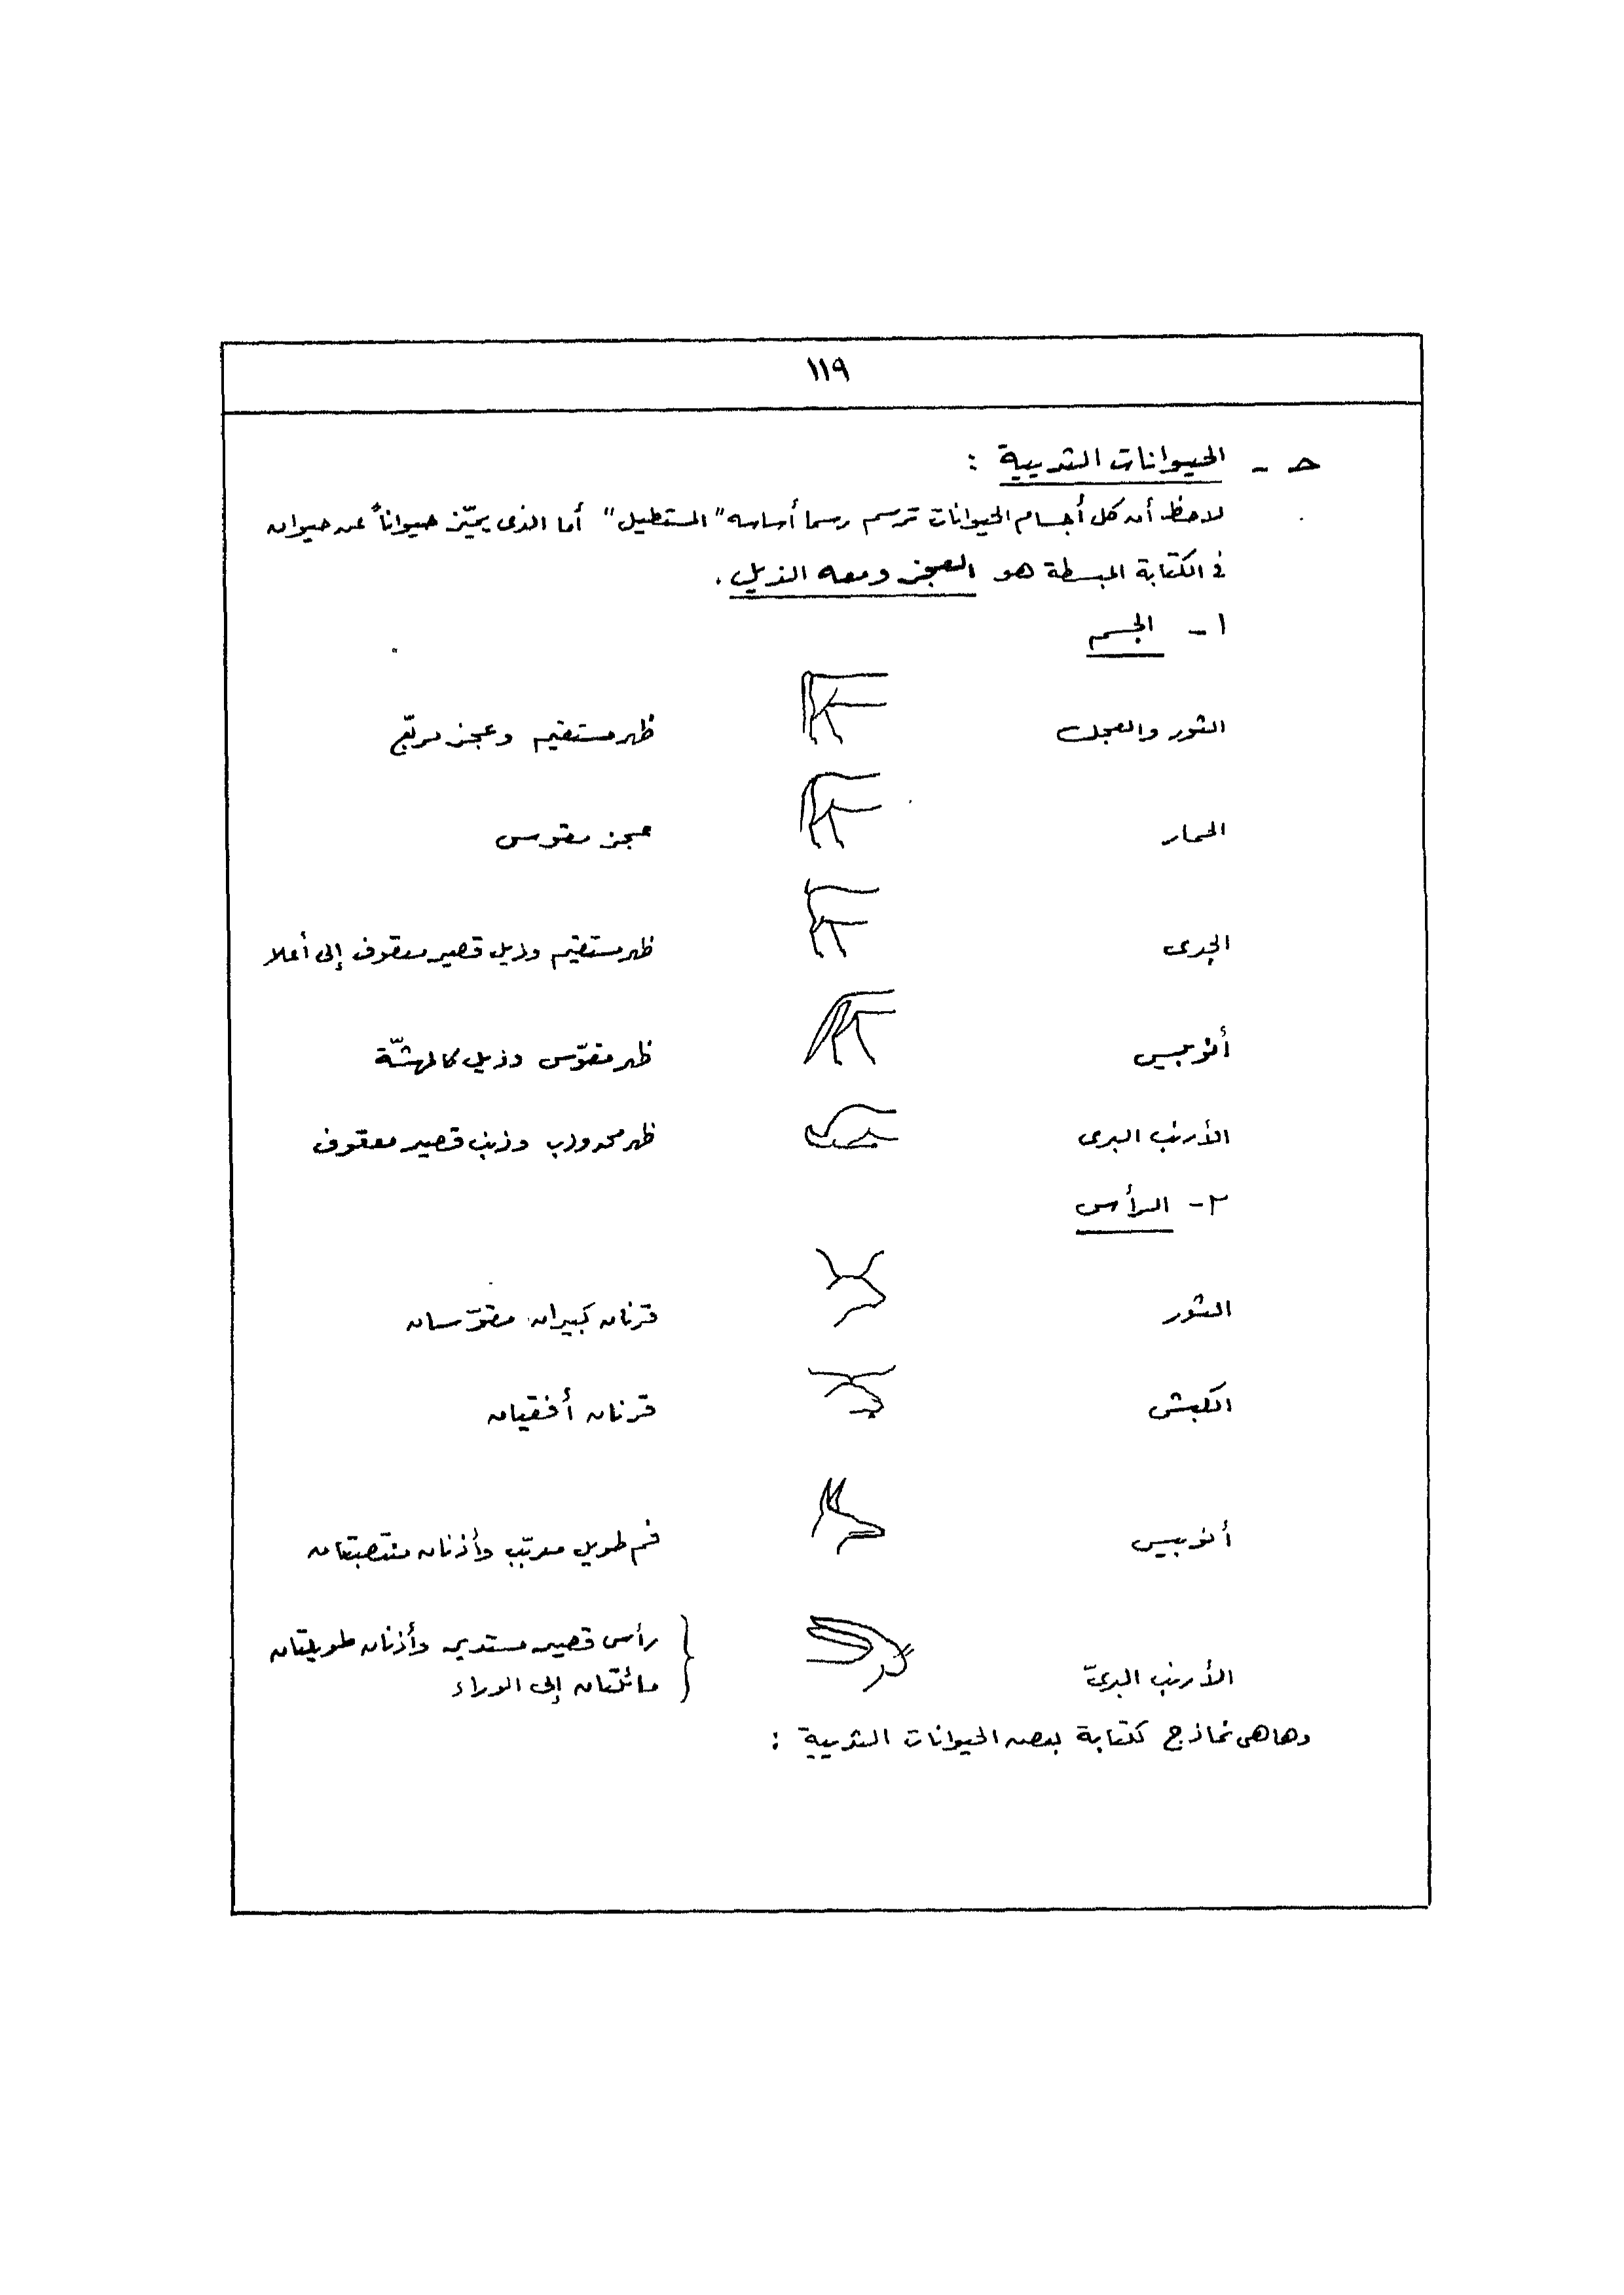 ١١٩
حـ - الحيوانات الثديية :
لاحظ أن كل أجسام الحيوانات ترسم رسما أساسه "المستطيل" أما الذى يميّز حيواناً عن حيوان
فى الكتابة المبسطة هو العجز ومعه الذيل .
١ - الجسم
الثور والعجل ظهر مستقيم وعجز مربّع
الحمار عجز مقوس
الجدى ظهر مستقيم وذيل قصير معقوف إلى أعلا
أنوبيس ظهر مقوّس وذيل كالمهشّة
الأرنب البرى ظهر محدودب وذنب قصير معقوف
٢ - الرأس
الثور قرنان كبيران مقوّسان
الكبش قرنان أفقيان
أنوبيس فم طويل مدبّب وأذنان منتصبتان
الأرنب البرىّ رأس قصير مستدير وأذنان طويلتان
مائلتان إلى الوراء
وهاهى نماذج ككتابة بعض الحيوانات الثديية :